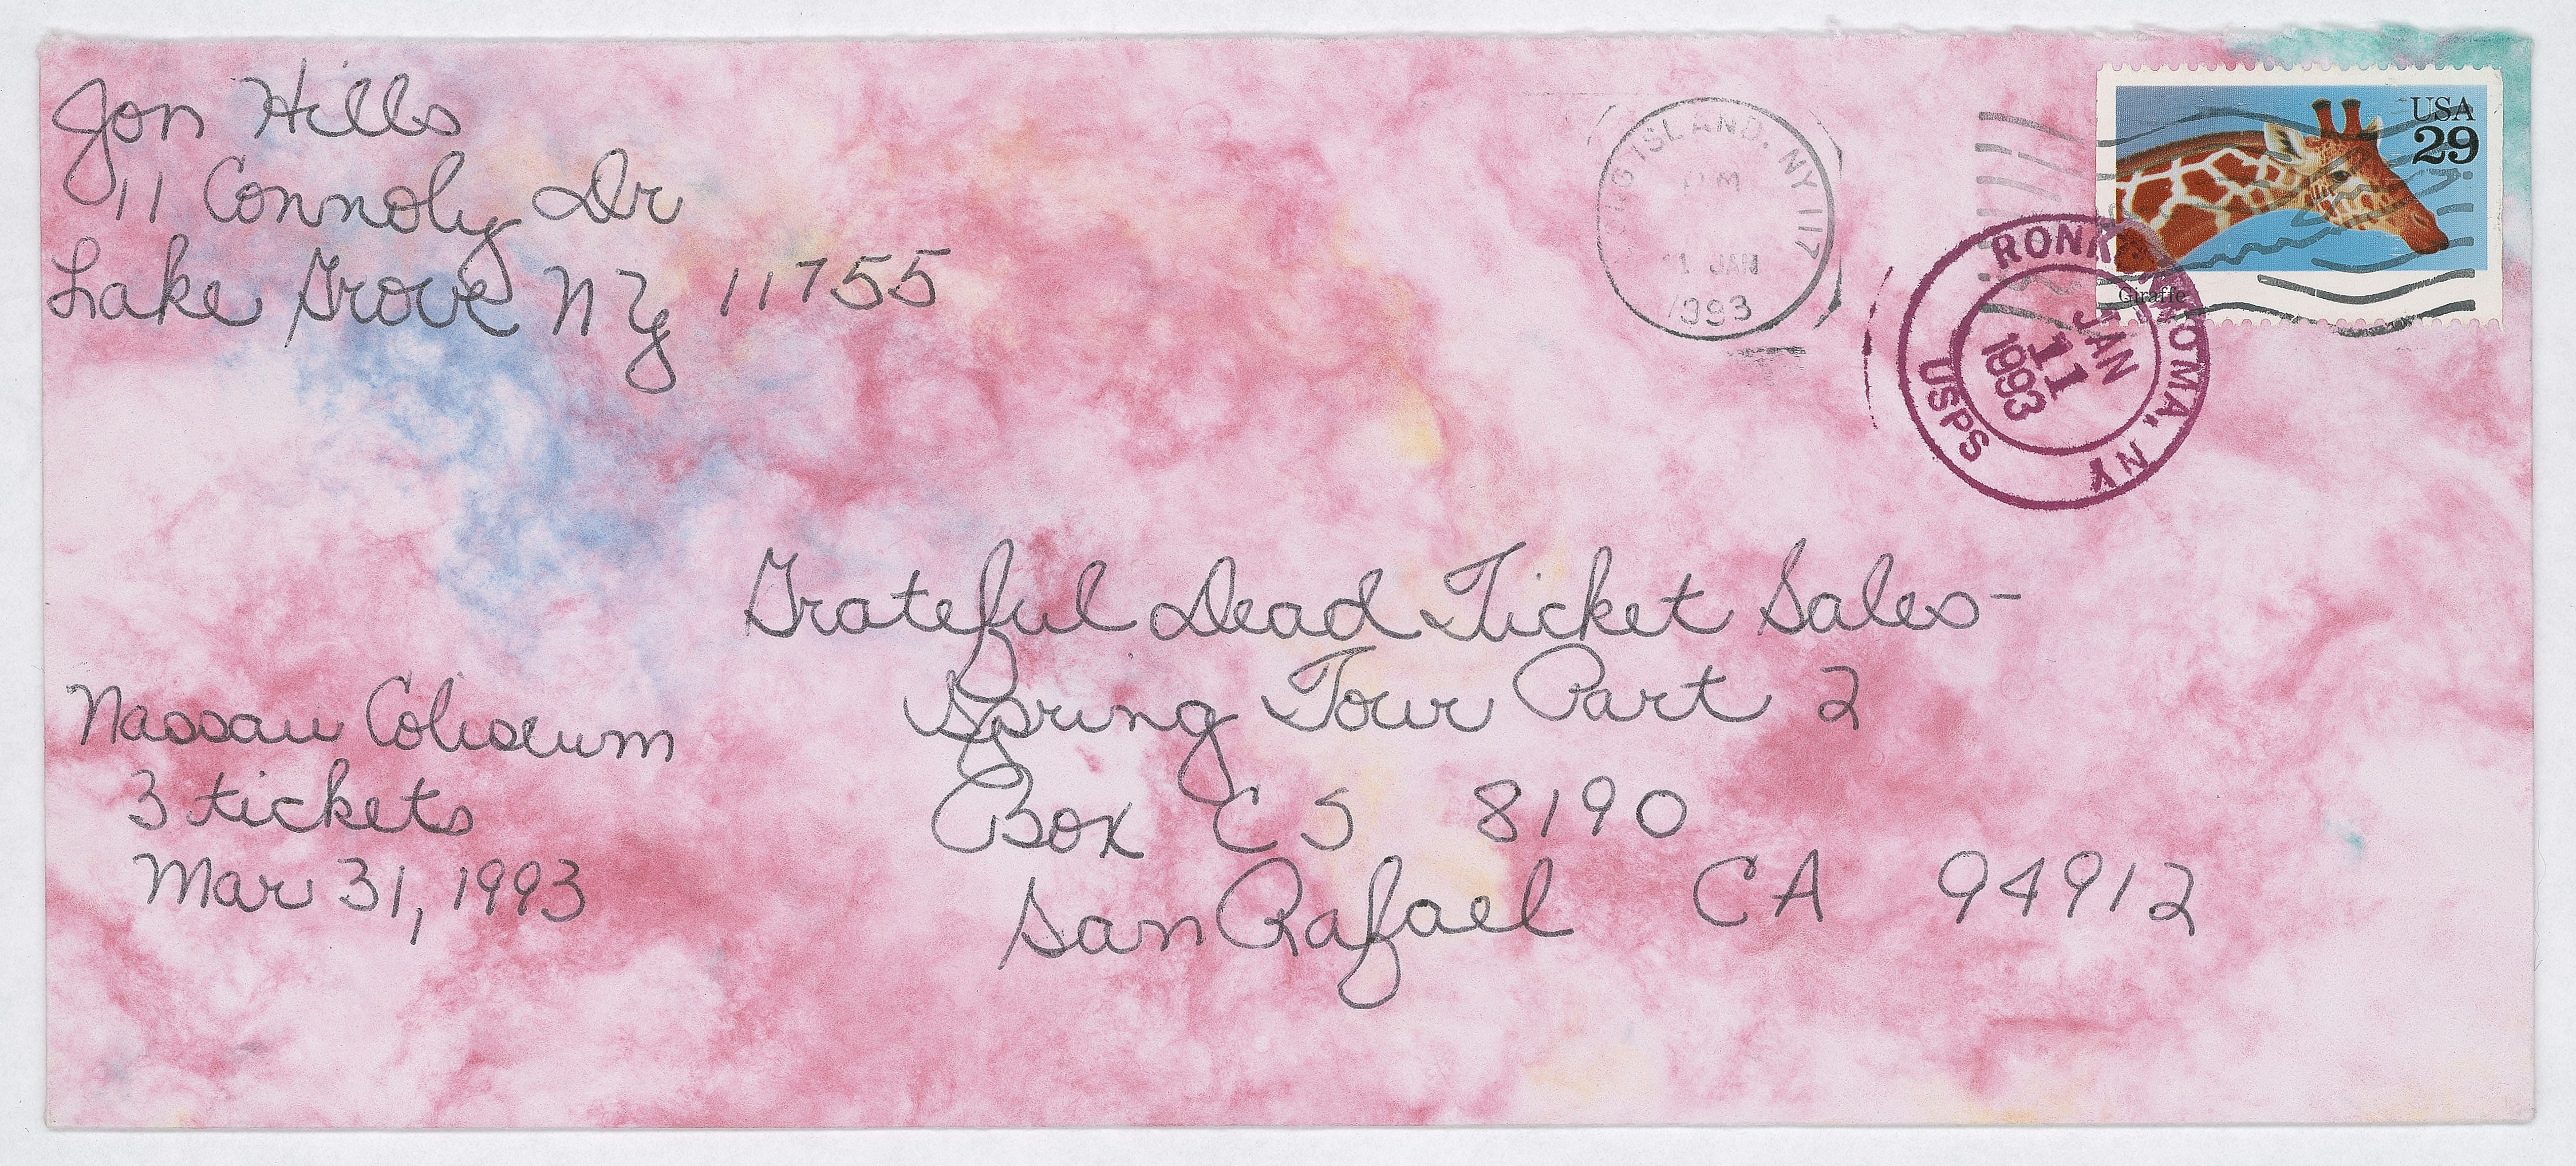 Jon Hills
11 Connoly Dr
Lake Grove NY 11755
LONG ISLAND, NY 117
PM
11 JAN
1993
USA
29
Giraffe
RONKONKOMA, NY
JAN
11
1993
USPS
Grateful Dead Ticket Sales-
Spring Tour Part 2
Box CS 8190
San Rafael CA 94912
Nassau Coliseum
3 tickets
Mar 31, 1993